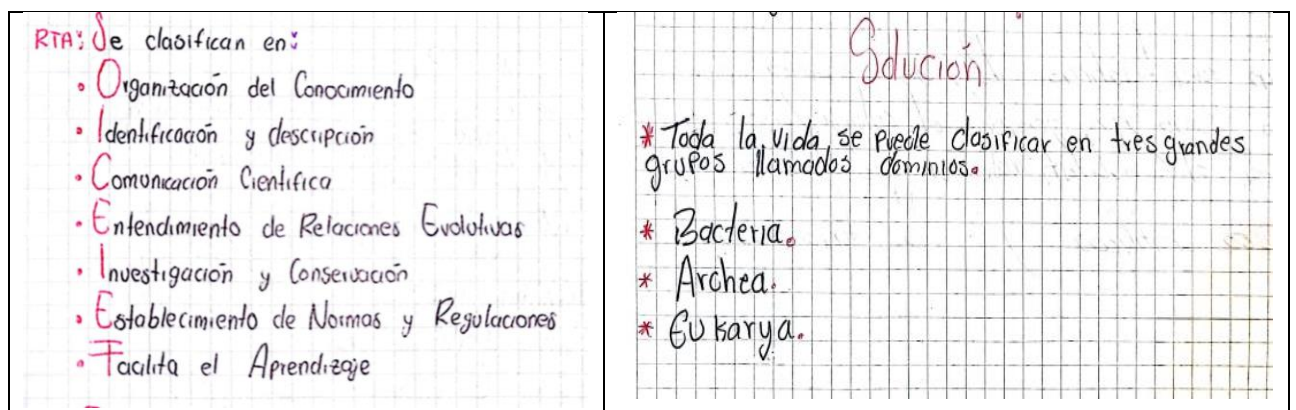 RTA: Se clasifican en:
• Organización del Conocimiento
• Identificación y descripción
• Comunicación Científica
• Entendimiento de Relaciones Evolutivas
• Investigación y Conservación
• Establecimiento de Normas y Regulaciones
• Facilita el Aprendizaje
Solución
* Toda la vida se puede clasificar en tres grandes
grupos llamados dominios.
* Bacteria.
* Archea.
* Eukarya.